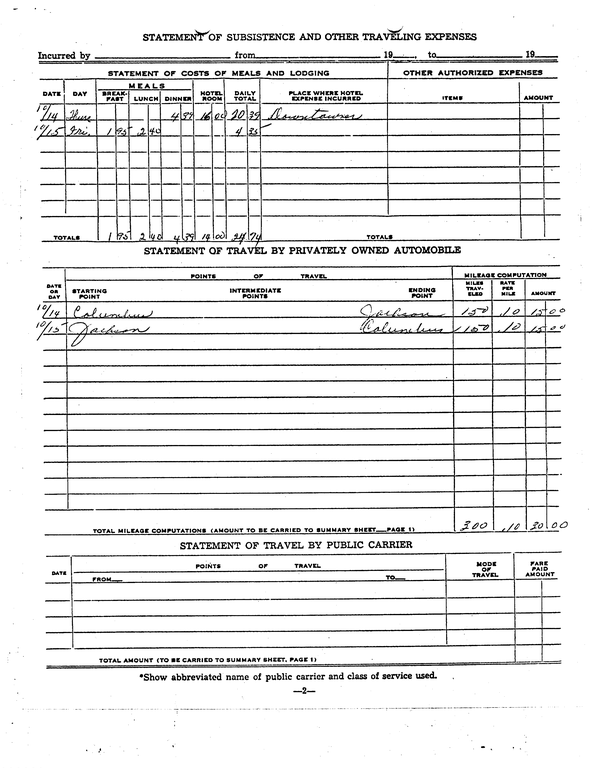 STATEMENT OF SUBSISTENCE AND OTHER TRAVELING EXPENSES
Incurred by from 19 , to 19
STATEMENT OF COSTS OF MEALS AND LODGING OTHER AUTHORIZED EXPENSES
MEALS
DATE DAY BREAK-FAST LUNCH DINNER HOTEL ROOM DAILY TOTAL PLACE WHERE HOTEL EXPENSE INCURRED ITEMS AMOUNT
10/14 Thurs 4 39 16 00 20 39 Downtowner
10/15 Fri. 1 95 2 40 4 35
TOTALS 1 95 2 40 4 39 00 24 74 TOTALS
STATEMENT OF TRAVEL BY PRIVATELY OWNED AUTOMOBILE
POINTS OF TRAVEL MILEAGE COMPUTATION
DATE OR DAY STARTING POINT INTERMEDIATE POINTS ENDING POINT MILES TRAV-ELED RATE PER MILE AMOUNT
10/14 Columbus Jackson 150 .10 15 00
10/15 Jackson Columbus 150 .10 15 00
TOTAL MILEAGE COMPUTATIONS (AMOUNT TO BE CARRIED TO SUMMARY SHEET PAGE 1) 300 .10 30 00
STATEMENT OF TRAVEL BY PUBLIC CARRIER
DATE POINTS OF TRAVEL MODE OF TRAVEL FARE PAID AMOUNT
FROM TO
TOTAL AMOUNT (TO BE CARRIED TO SUMMARY SHEET, PAGE 1)
*Show abbreviated name of public carrier and class of service used.
—2—